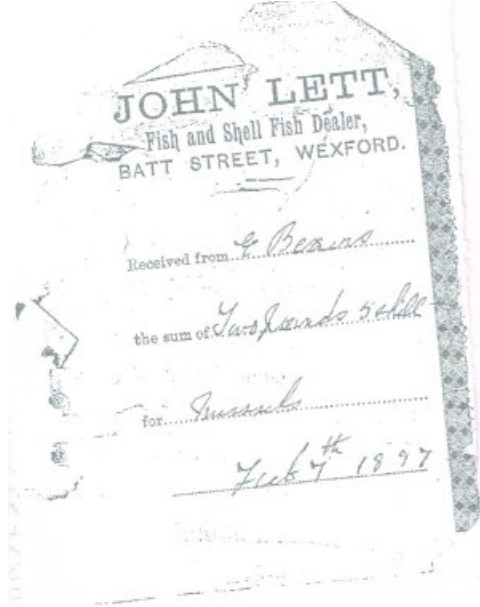 JOHN LETT,
Fish and Shell Fish Dealer,
BATT STREET, WEXFORD.
Received from
the sum of Two pounds 5 shill
for Mussels
Feb 7th 1897